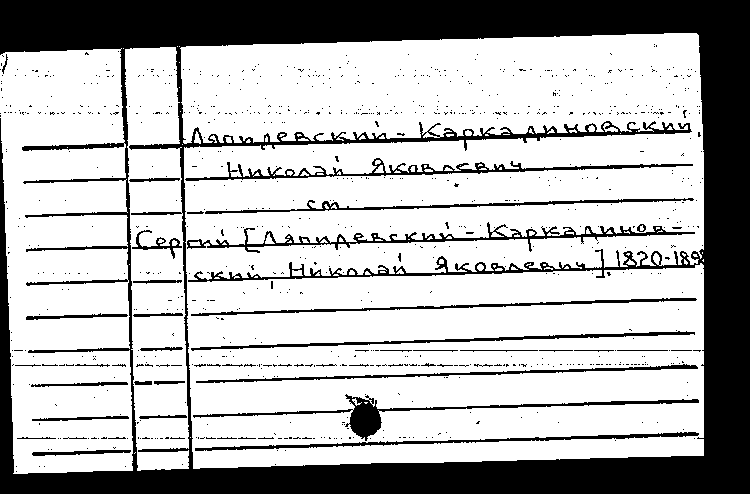 Ляпидевский-Каркадиновский,
Николай Яковлевич
см
Сергий [Ляпидевский-Каркадинов-
ский, Николай Яковлевич]. 1820-1898